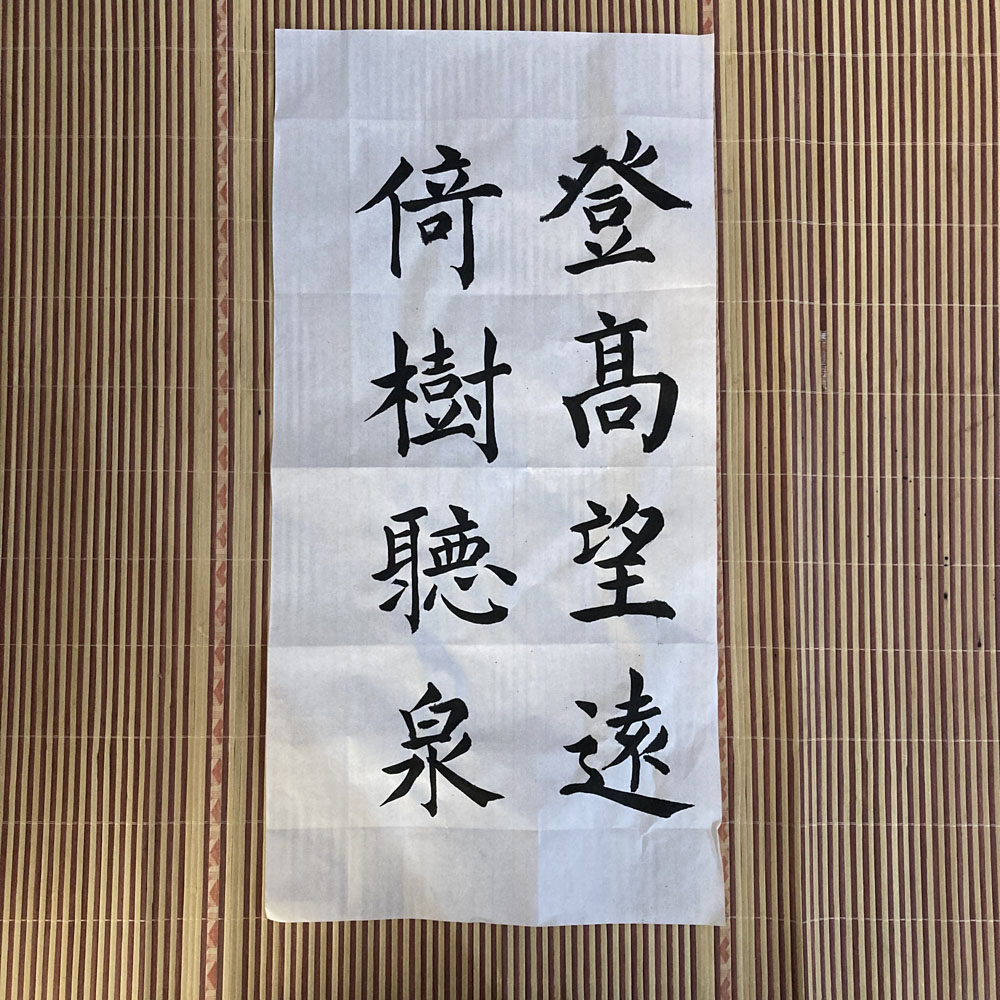 登髙望遠
倚樹聽泉